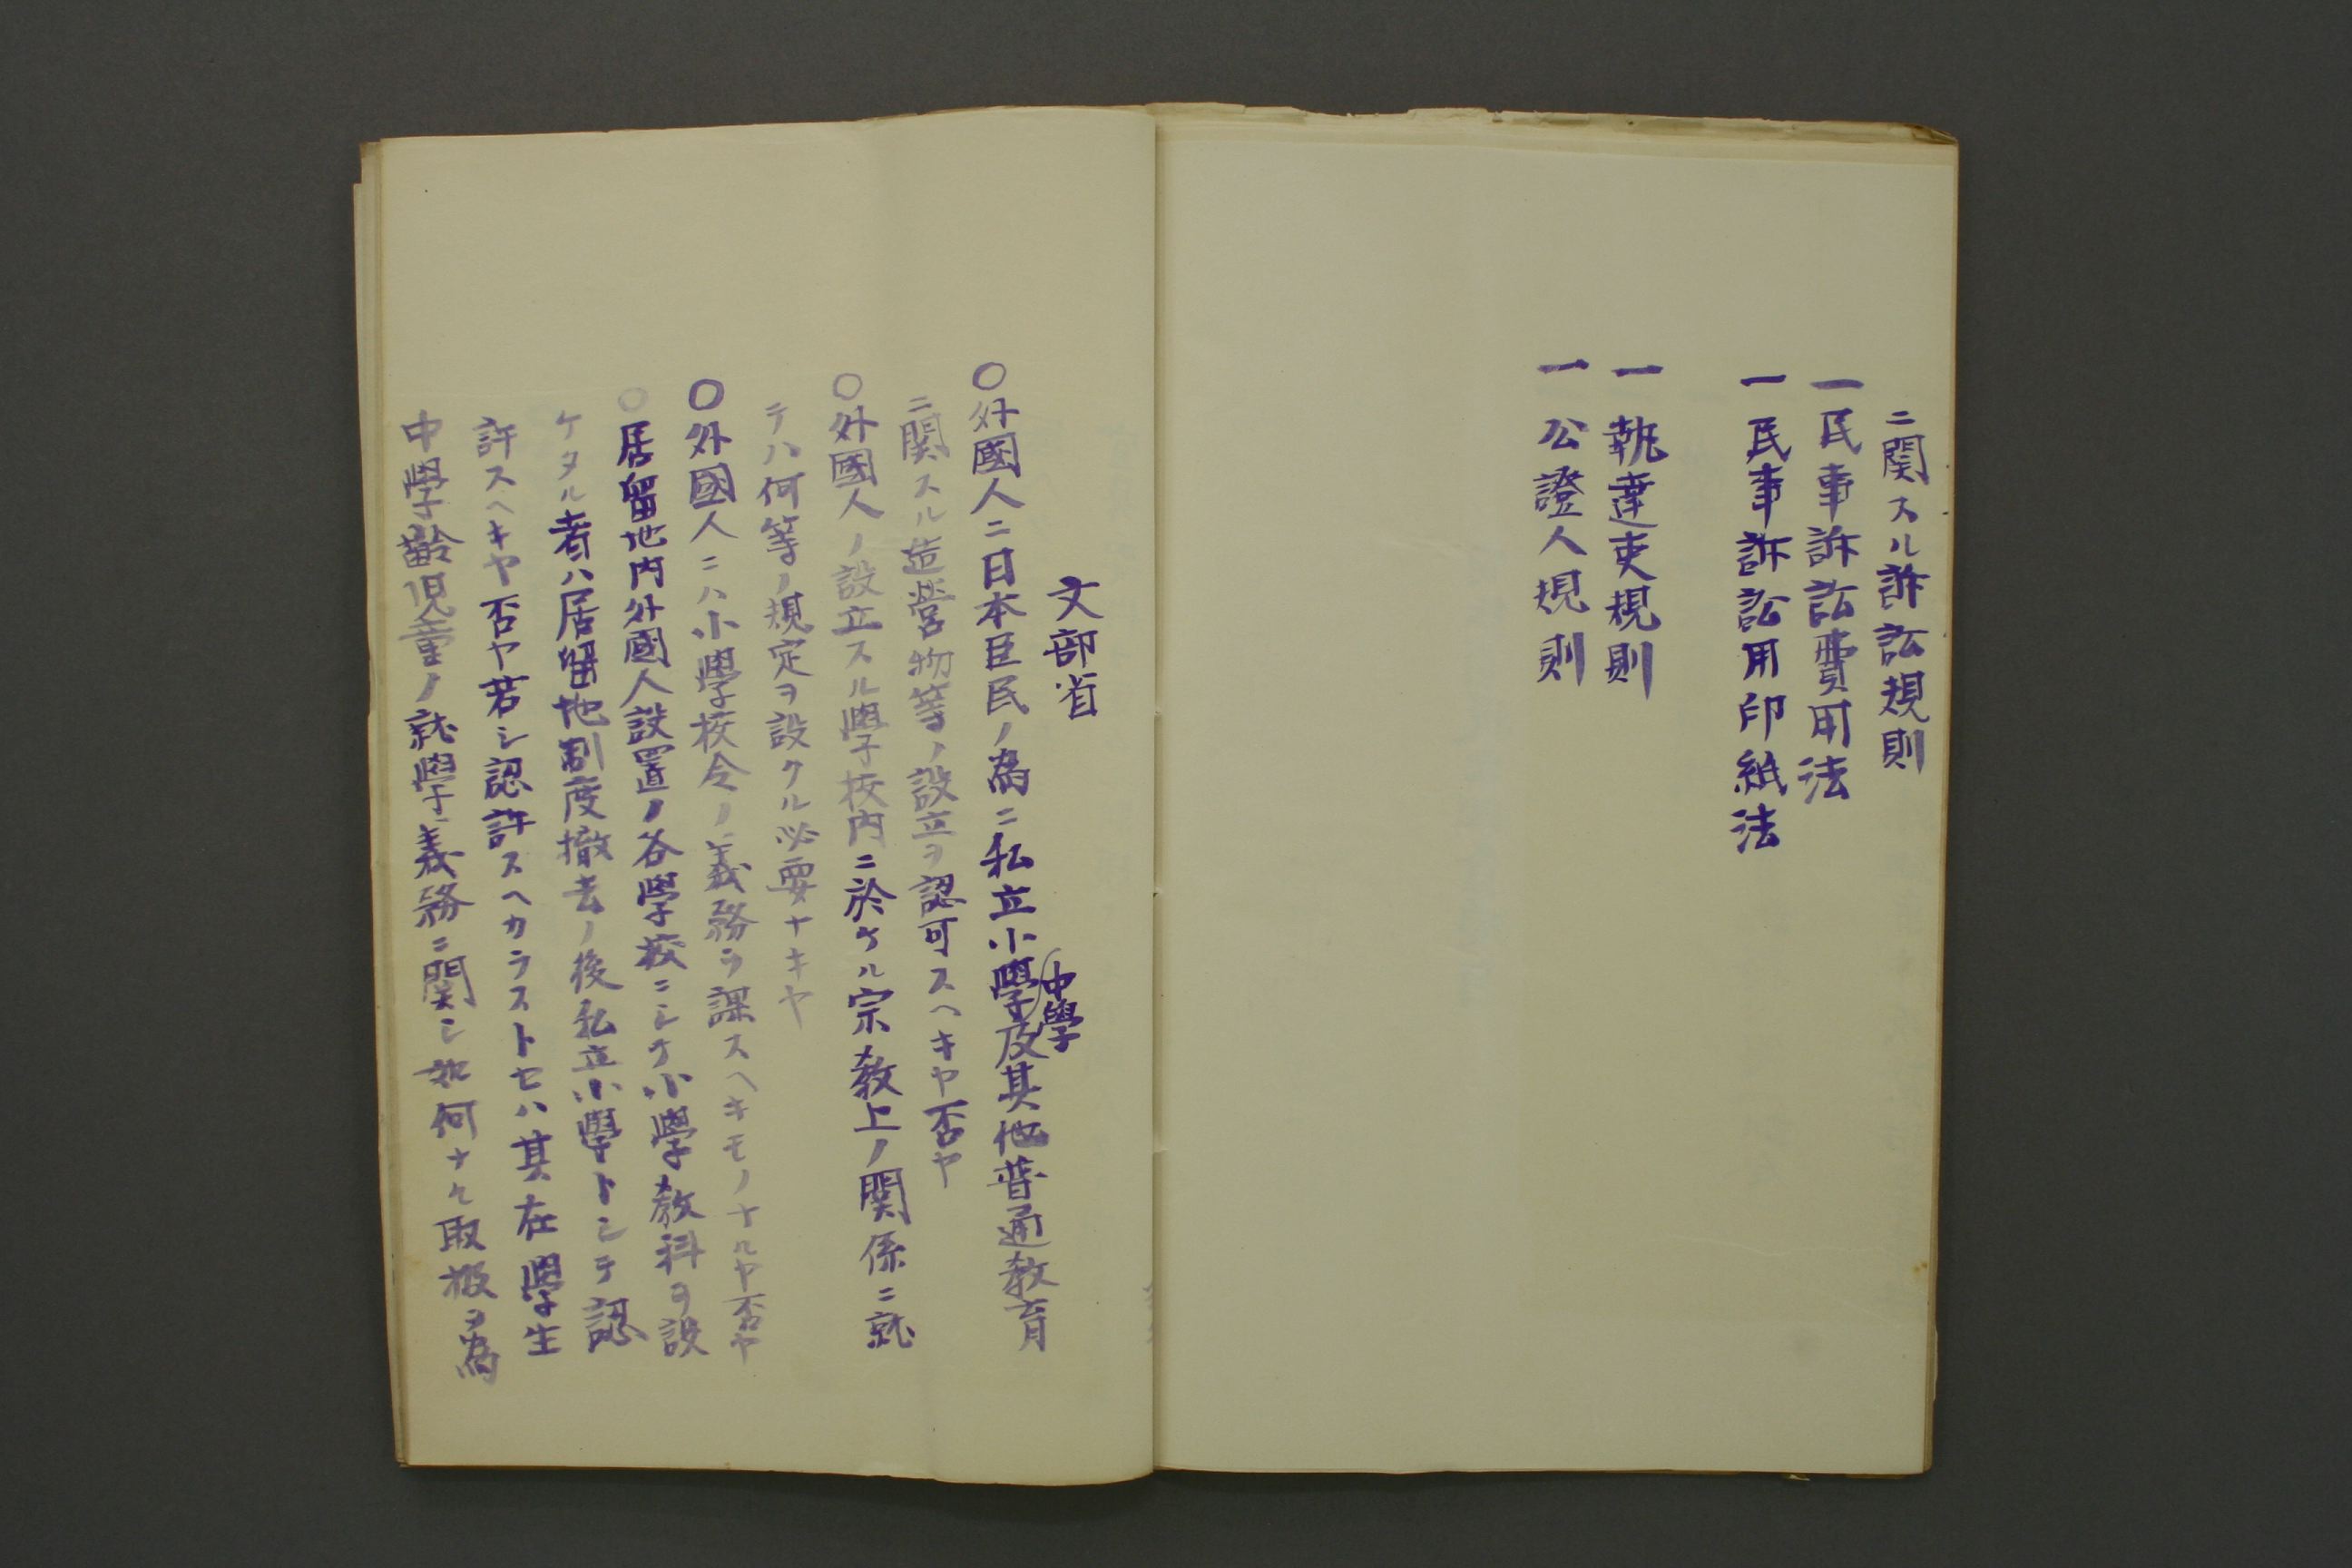 ニ関スル訴訟規則
一民事訴訟費用法
一民事訴訟用印紙法
一執達吏規則
一公證人規則
文部省
○外國人ニ日本臣民ノ為ニ私立小學中學及其他普通教育
ニ関スル造營物等ノ設立ヲ認可スヘキヤ否ヤ
○外國人ノ設立スル學校内ニ於ケル宗教上ノ関係ニ就
テハ何等ノ規定ヲ設クル必要ナキヤ
○外國人ニハ小學校令ノ義務ヲ課スヘキモノナルヤ否ヤ
○居留地内外國人設置ノ各學校ニシテ小學教科ヲ設
ケタル者ハ居留地制度撤去ノ後私立小學トシテ認
許スヘキヤ否ヤ若シ認許スヘカラストセハ其在學生
中學齢児童ノ就學義務ニ関シ如何ナル取扱ヲ為